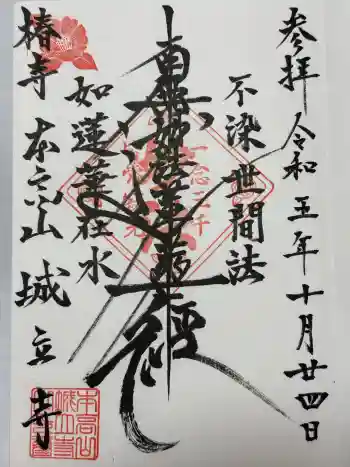 参拝 令和五年十月廿四日
不染世間法
南無妙法蓮華経
如蓮華在水
椿寺 本高山 城立寺